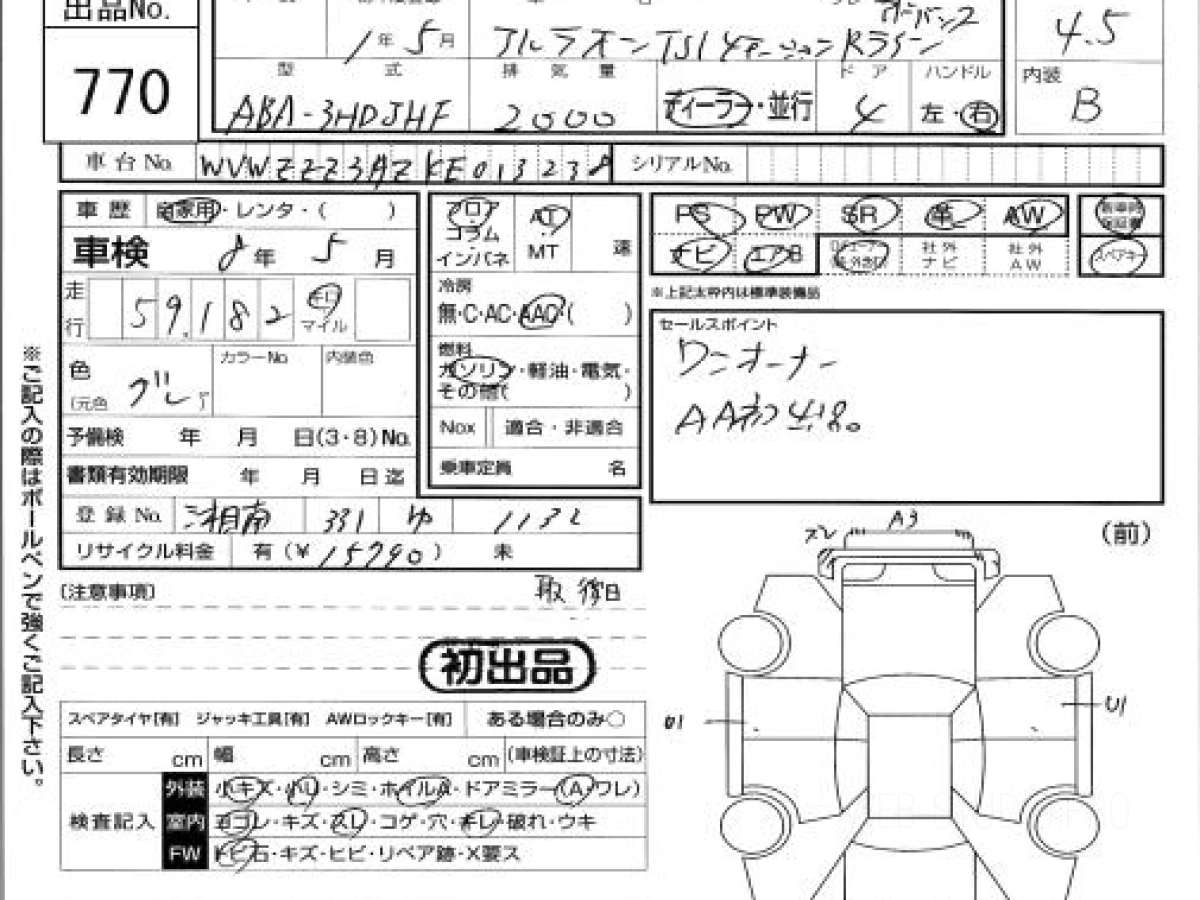 出品No.
770
1年 5月
アルテオン TSI 4モーション Rライン
4.5
型 式
排 気 量
ド ア
ハンドル
内装
ABA-3HDJHF
2000
ディーラー・並行
4
左・右
B
車台No.
WVWZZZ3HZKE013238
シリアルNo.
車 歴 自家用・レンタ・( )
車検 8年 5月
走行 59,182 キロ マイル
色 (元色 グレー )
カラーNo.
内装色
予備検 年 月 日(3・8)No.
書類有効期限 年 月 日迄
登録No. 湘南 331 ゆ 1132
リサイクル料金 有(¥15790) 未
フロア コラム インパネ
AT MT 速
冷房
無・C・AC・AAC( )
燃料
ガソリン・軽油・電気・
その他( )
Nox 適合・非適合
乗車定員 名
PS PW SR 革 AW
ナビ エアB 社外ナビ 社外AW
スペアキー
※上記太枠内は標準装備品
セールスポイント
ワンオーナー
AA初出品。
※ご記入の際はボールペンで強くご記入下さい。
[注意事項]
取 後日
初出品
スペアタイヤ[有] ジャッキ工具[有] AWロックキー[有] ある場合のみ○
長さ cm 幅 cm 高さ cm (車検証上の寸法)
検査記入
外装 小キズ・小U・シミ・ホイルA・ドアミラー(A・ワレ)
室内 ヨゴレ・キズ・スレ・コゲ・穴・キレ・破れ・ウキ
FW トビ石・キズ・ヒビ・リペア跡・X要ス
(前)
ズレ
A3
U1
U1